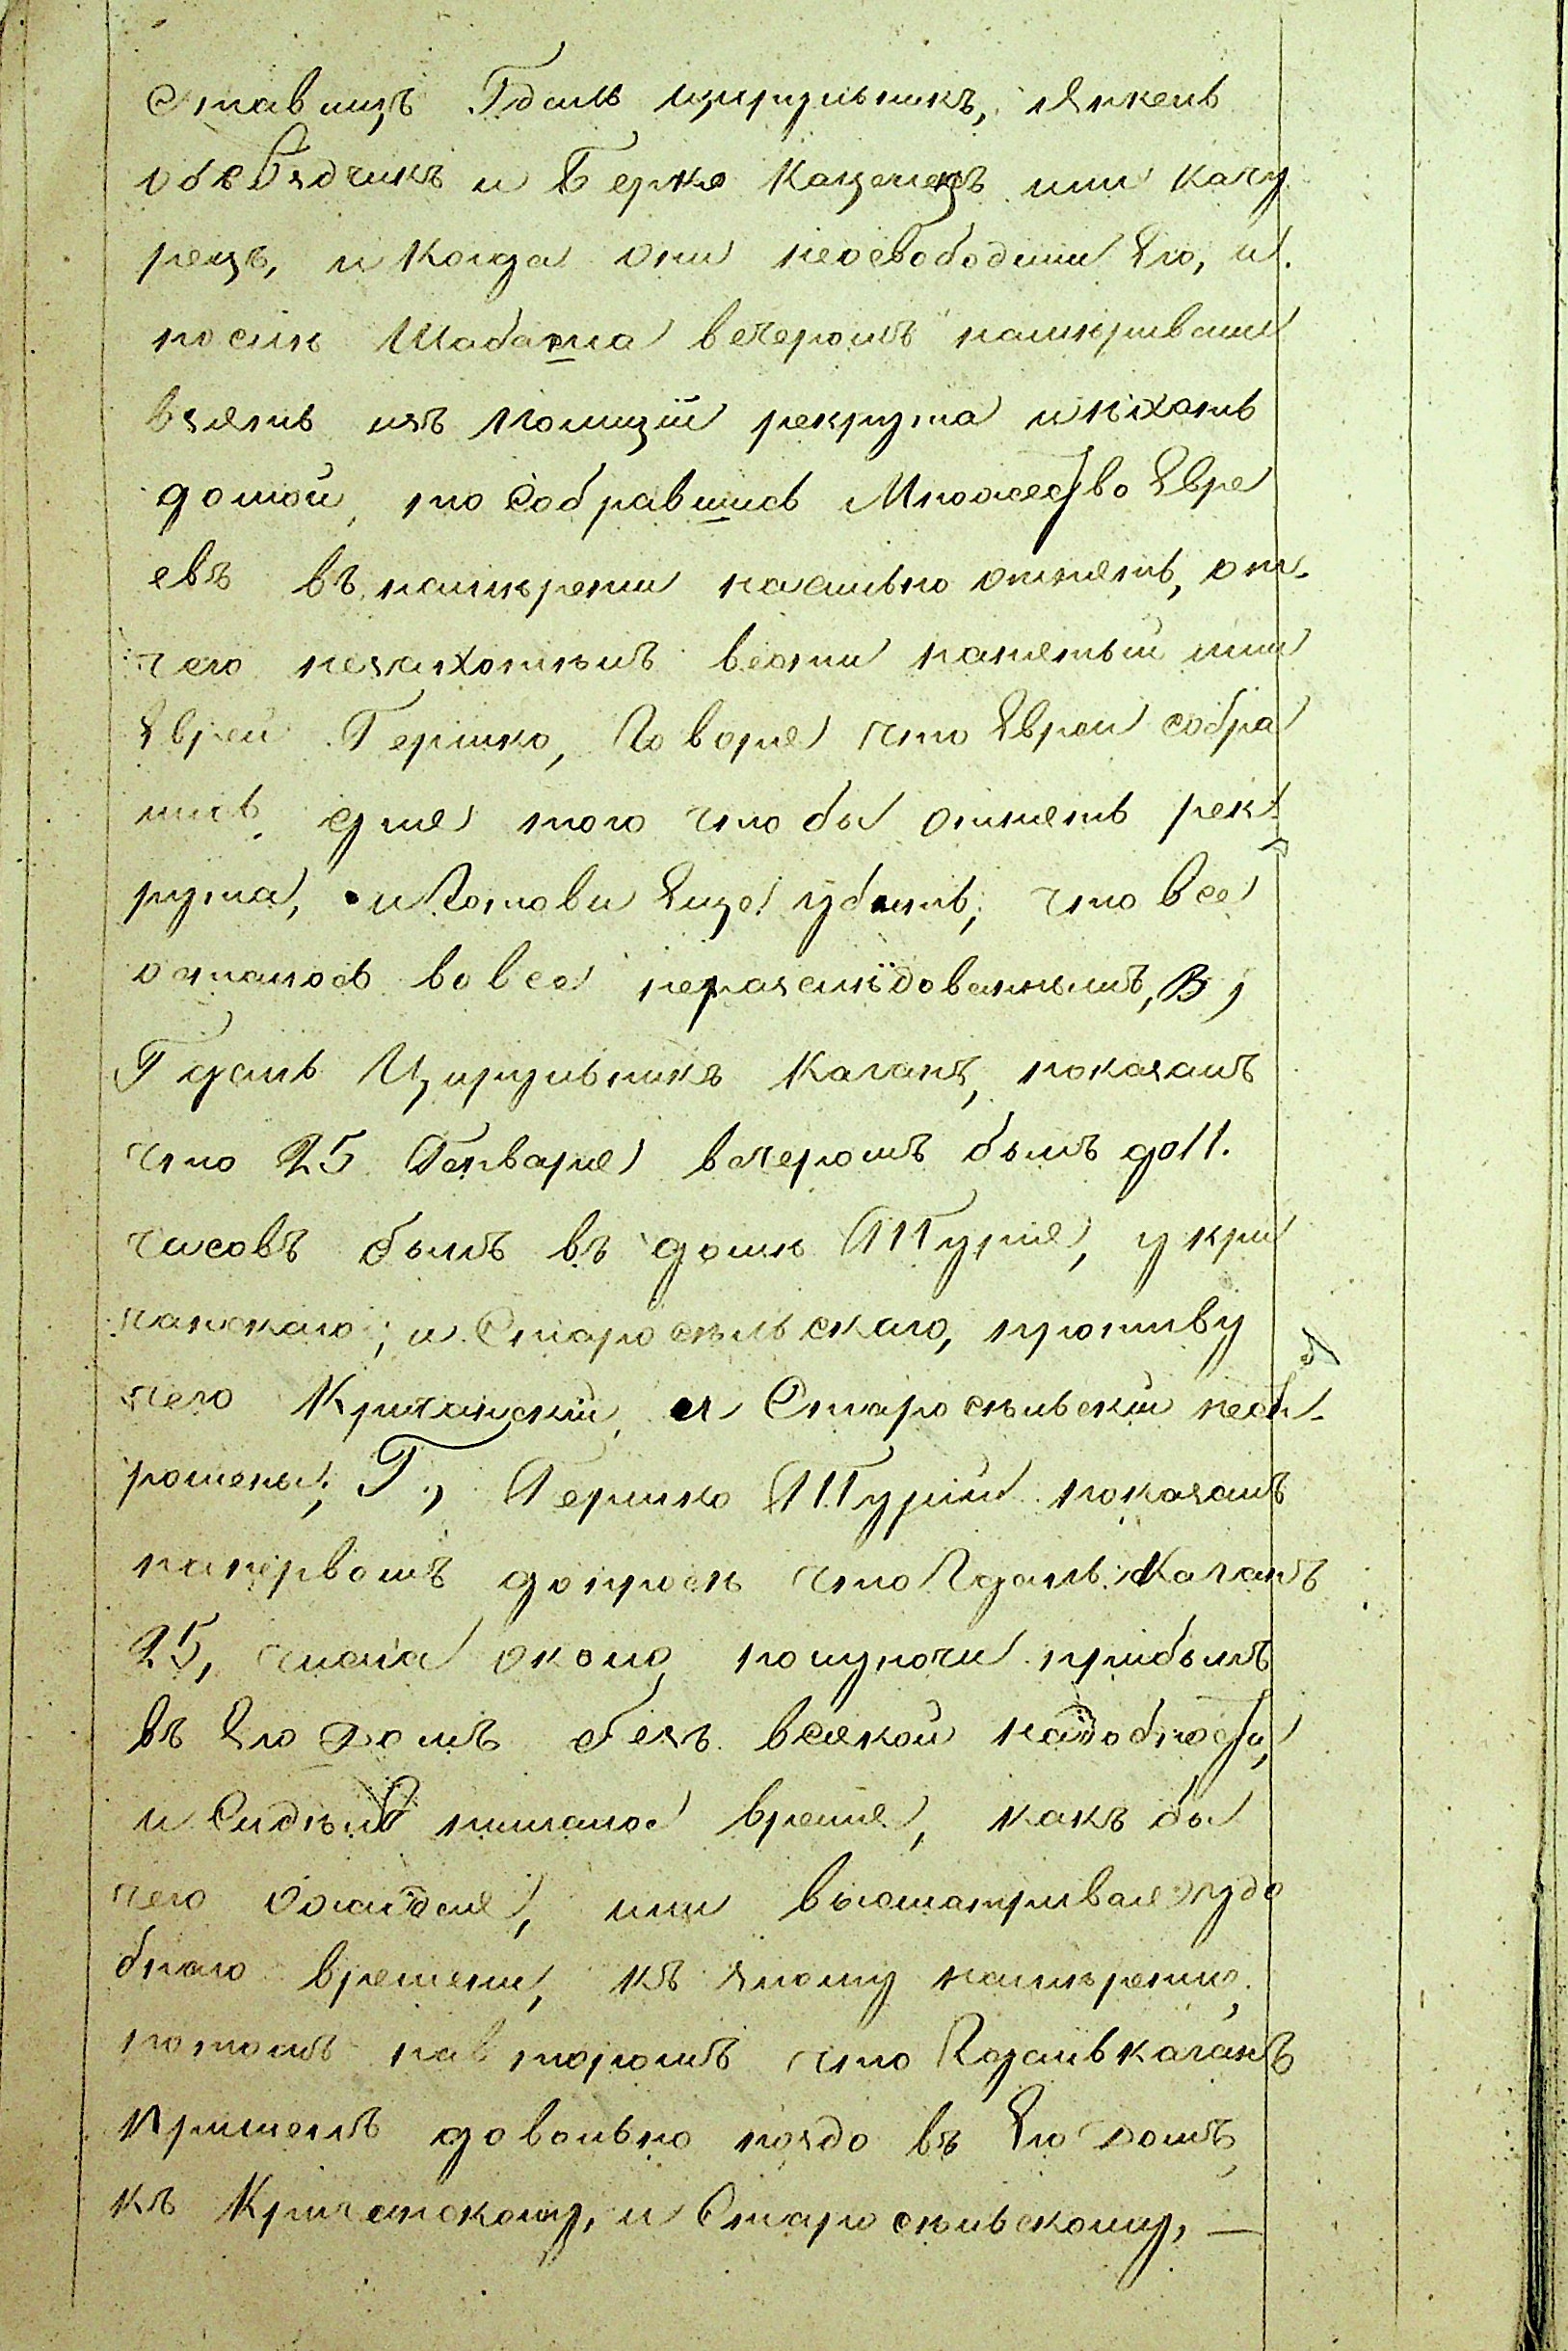 ставщъ Гдаль цырульникъ, Янкель
объѣздчикъ и Берко Каценецъ или Качу
рецъ, и когда они неосвободили Его, и
послѣ Шабаша вечеромъ намѣривали
взять изъ полиціи рекрута и ѣхать
домой, то собравшись Множество Евре
евъ въ намѣреніи насильно отнять, от
чего незахотѣлъ вести нанятый или
Еврей Гершко, Говоря что Евреи собра
лись для того что бы отнять рек
рута, и Готовы Еще убить; что все
осталось вовсе неразслѣдованнымъ, В,
Гдаль Цирульникъ Каганъ, показалъ
что 25 Генваря вечеромъ былъ до 11.
часовъ былъ въ домѣ ШТурмя, у кри
чанскаго, и Старосѣльскаго, противу
чего Кричанскій и Старосѣльскій несп
рошены; Г., Гершко ШТурми показалъ
напервомъ допросѣ что Гдаль Каганъ
25, числа около полуночи прибылъ
въ Его домъ безъ всякой надобности,
и Сидѣлъ немалое время, какъ бы
чего ожидая, или высматривая удо
бнаго времени, къ злому намѣренію,
потомъ навторомъ что Гдаль каганъ
пришелъ довольно поздо въ Его домъ
къ Кричанскому, и Старосѣльскому, —